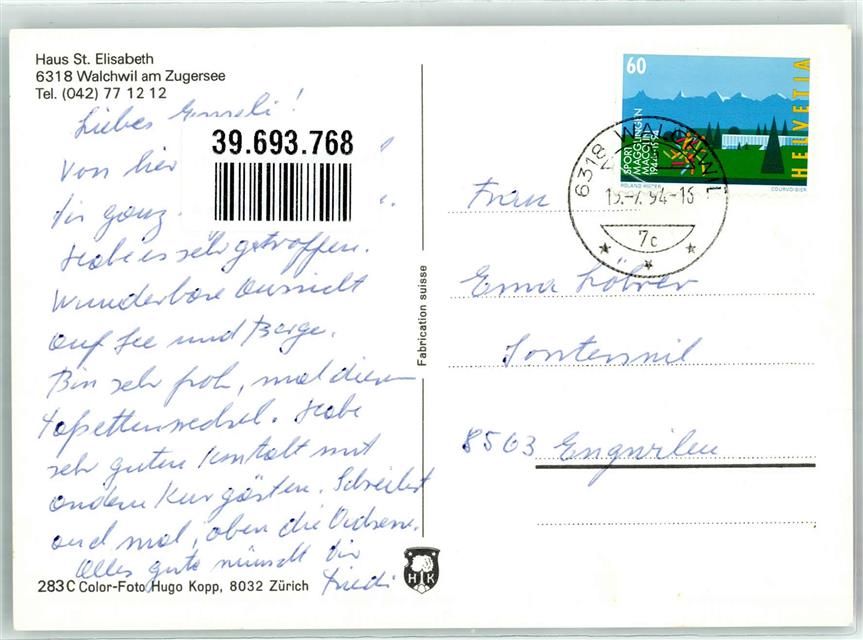 Haus St. Elisabeth
6318 Walchwil am Zugersee
Tel. (042) 77 12 12
Liebes !
39.693.768
Von hier
dir ganz
Habe es sehr getroffen.
Wunderbare Aussicht
auf See und Berge.
Bin sehr froh, mal diesen
Habe
sehr guten Kontakt mit
andern Kurgästen. Schreibst
auch mal, oben die Adresse.
Alles gute wünscht dir
Friedi
283C Color-Foto Hugo Kopp, 8032 Zürich
Fabrication suisse
HK
60
HELVETIA
SPORT
MAGGLINGEN
MACOLIN
1944-1994
ROLAND HIRTER
COURVOISIER
6318 WALCHWIL
-7.94-16
7c
Frau
Erna Löhrer
8563 Engwilen